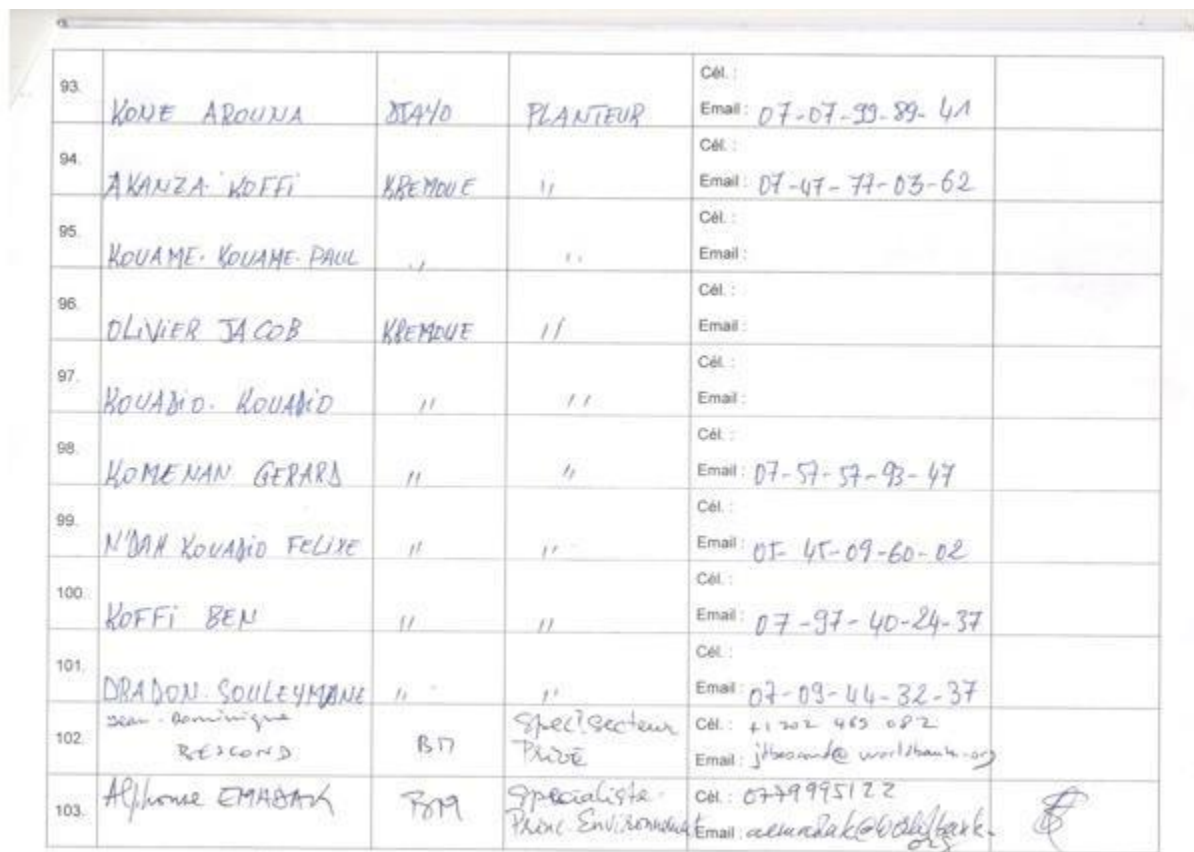 93. KONE AROUNA DJAYO PLANTEUR Cél. :
Email : 07-07-99-89-41
94. AKANZA KOFFI KREMOUE " Cél. :
Email : 07-47-77-03-62
95. KOUAME. KOUAME. PAUL " " Cél. :
Email :
96. OLIVIER JACOB KREMOUE " Cél. :
Email :
97. KOUADIO. KOUADIO " " Cél. :
Email :
98. KOMENAN GERARD " " Cél. :
Email : 07-57-57-93-47
99. N'DAH KOUADIO FELIXE " " Cél. :
Email : 05-45-09-60-02
100. KOFFI BEN " " Cél. :
Email : 07-97-40-24-37
101. DRABON SOULEYMANE " " Cél. :
Email : 07-09-44-32-37
102. Jean-Dominique BESCOND BM Spec. Secteur Privé Cél. : +1 202 469 082
Email :
103. Alphonse EMADAK BM Specialiste Princ. Environnement Cél. : 0779995122
Email : aemadak@worldbank.org